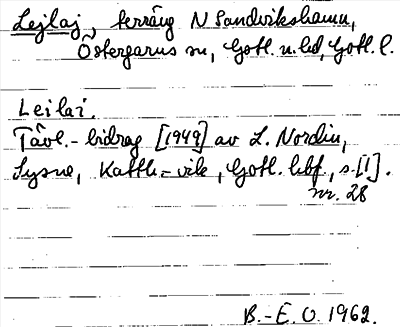 Lejlaj, terräng N Sandvikshamn,
Östergarns sn, Gotl. n. hd, Gotl. l.
Leilai.
Tävl.-bidrag [1949] av L. Nordin,
Sysne, Katth.-vik, Gotl. lbf, s. [1].
nr. 28
B.-E. O. 1962.